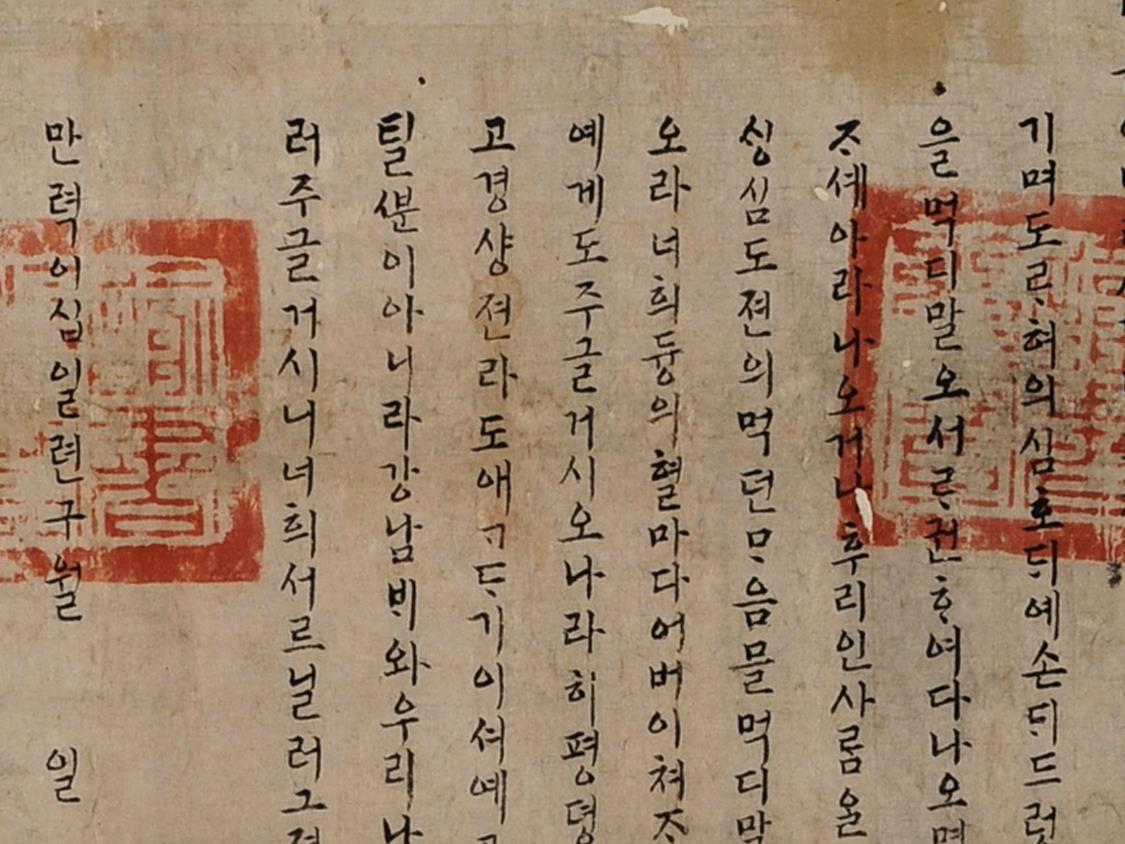 기며도ᄅᆞ혀의심호ᄃᆡ예손ᄃᆡ드럿
을먹디말오서ᄅᆞ권ᄒᆞ여다나오면
ᄌᆞ셰아라나오거나후리인사ᄅᆞᆷ올
ᄉᆡᆼ심도젼의먹던ᄆᆞ음믈먹디말
오라너희듕의혈마다어버이쳐ᄌᆞ
예게도주글거시오나라히평뎡
고경샹젼라도애ᄀᆞᄃᆞ기이셔예
틸ᄲᅮᆫ이아니라강남ᄇᆡ와우리나
러주글거시니너희서르닐러그
만력이십일년구월 일